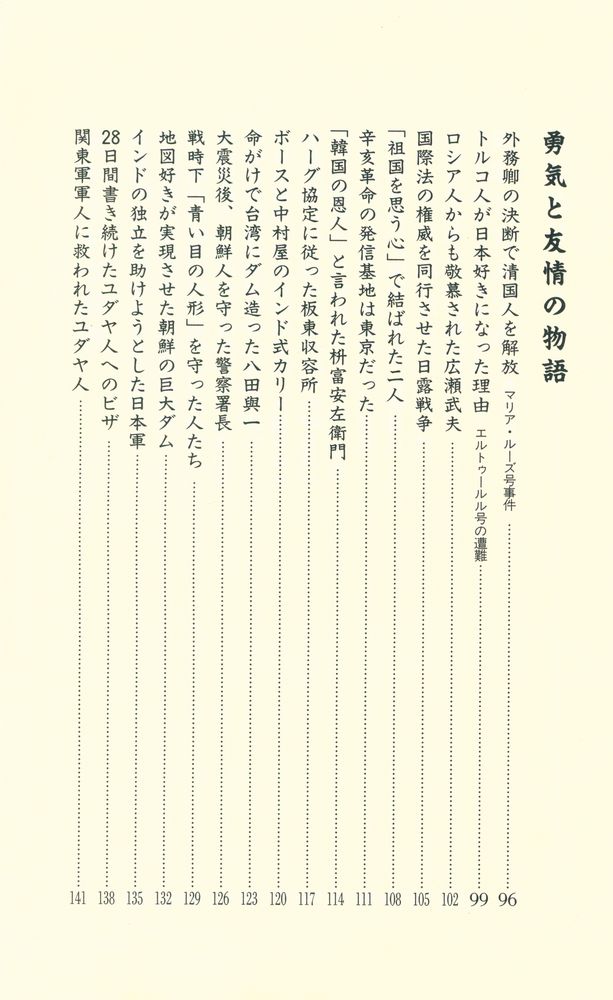 勇気と友情の物語
外務卿の決断で清国人を解放 マリア・ルーズ号事件 96
トルコ人が日本好きになった理由 エルトゥールル号の遭難 99
ロシア人からも敬慕された広瀬武夫 102
国際法の権威を同行させた日露戦争 105
「祖国を思う心」で結ばれた二人 108
辛亥革命の発信基地は東京だった 111
「韓国の恩人」と言われた枡富安左衛門 114
ハーグ協定に従った板東収容所 117
ボースと中村屋のインド式カリー 120
命がけで台湾にダム造った八田與一 123
大震災後、朝鮮人を守った警察署長 126
戦時下「青い目の人形」を守った人たち 129
地図好きが実現させた朝鮮の巨大ダム 132
インドの独立を助けようとした日本軍 135
28日間書き続けたユダヤ人へのビザ 138
関東軍軍人に救われたユダヤ人 141